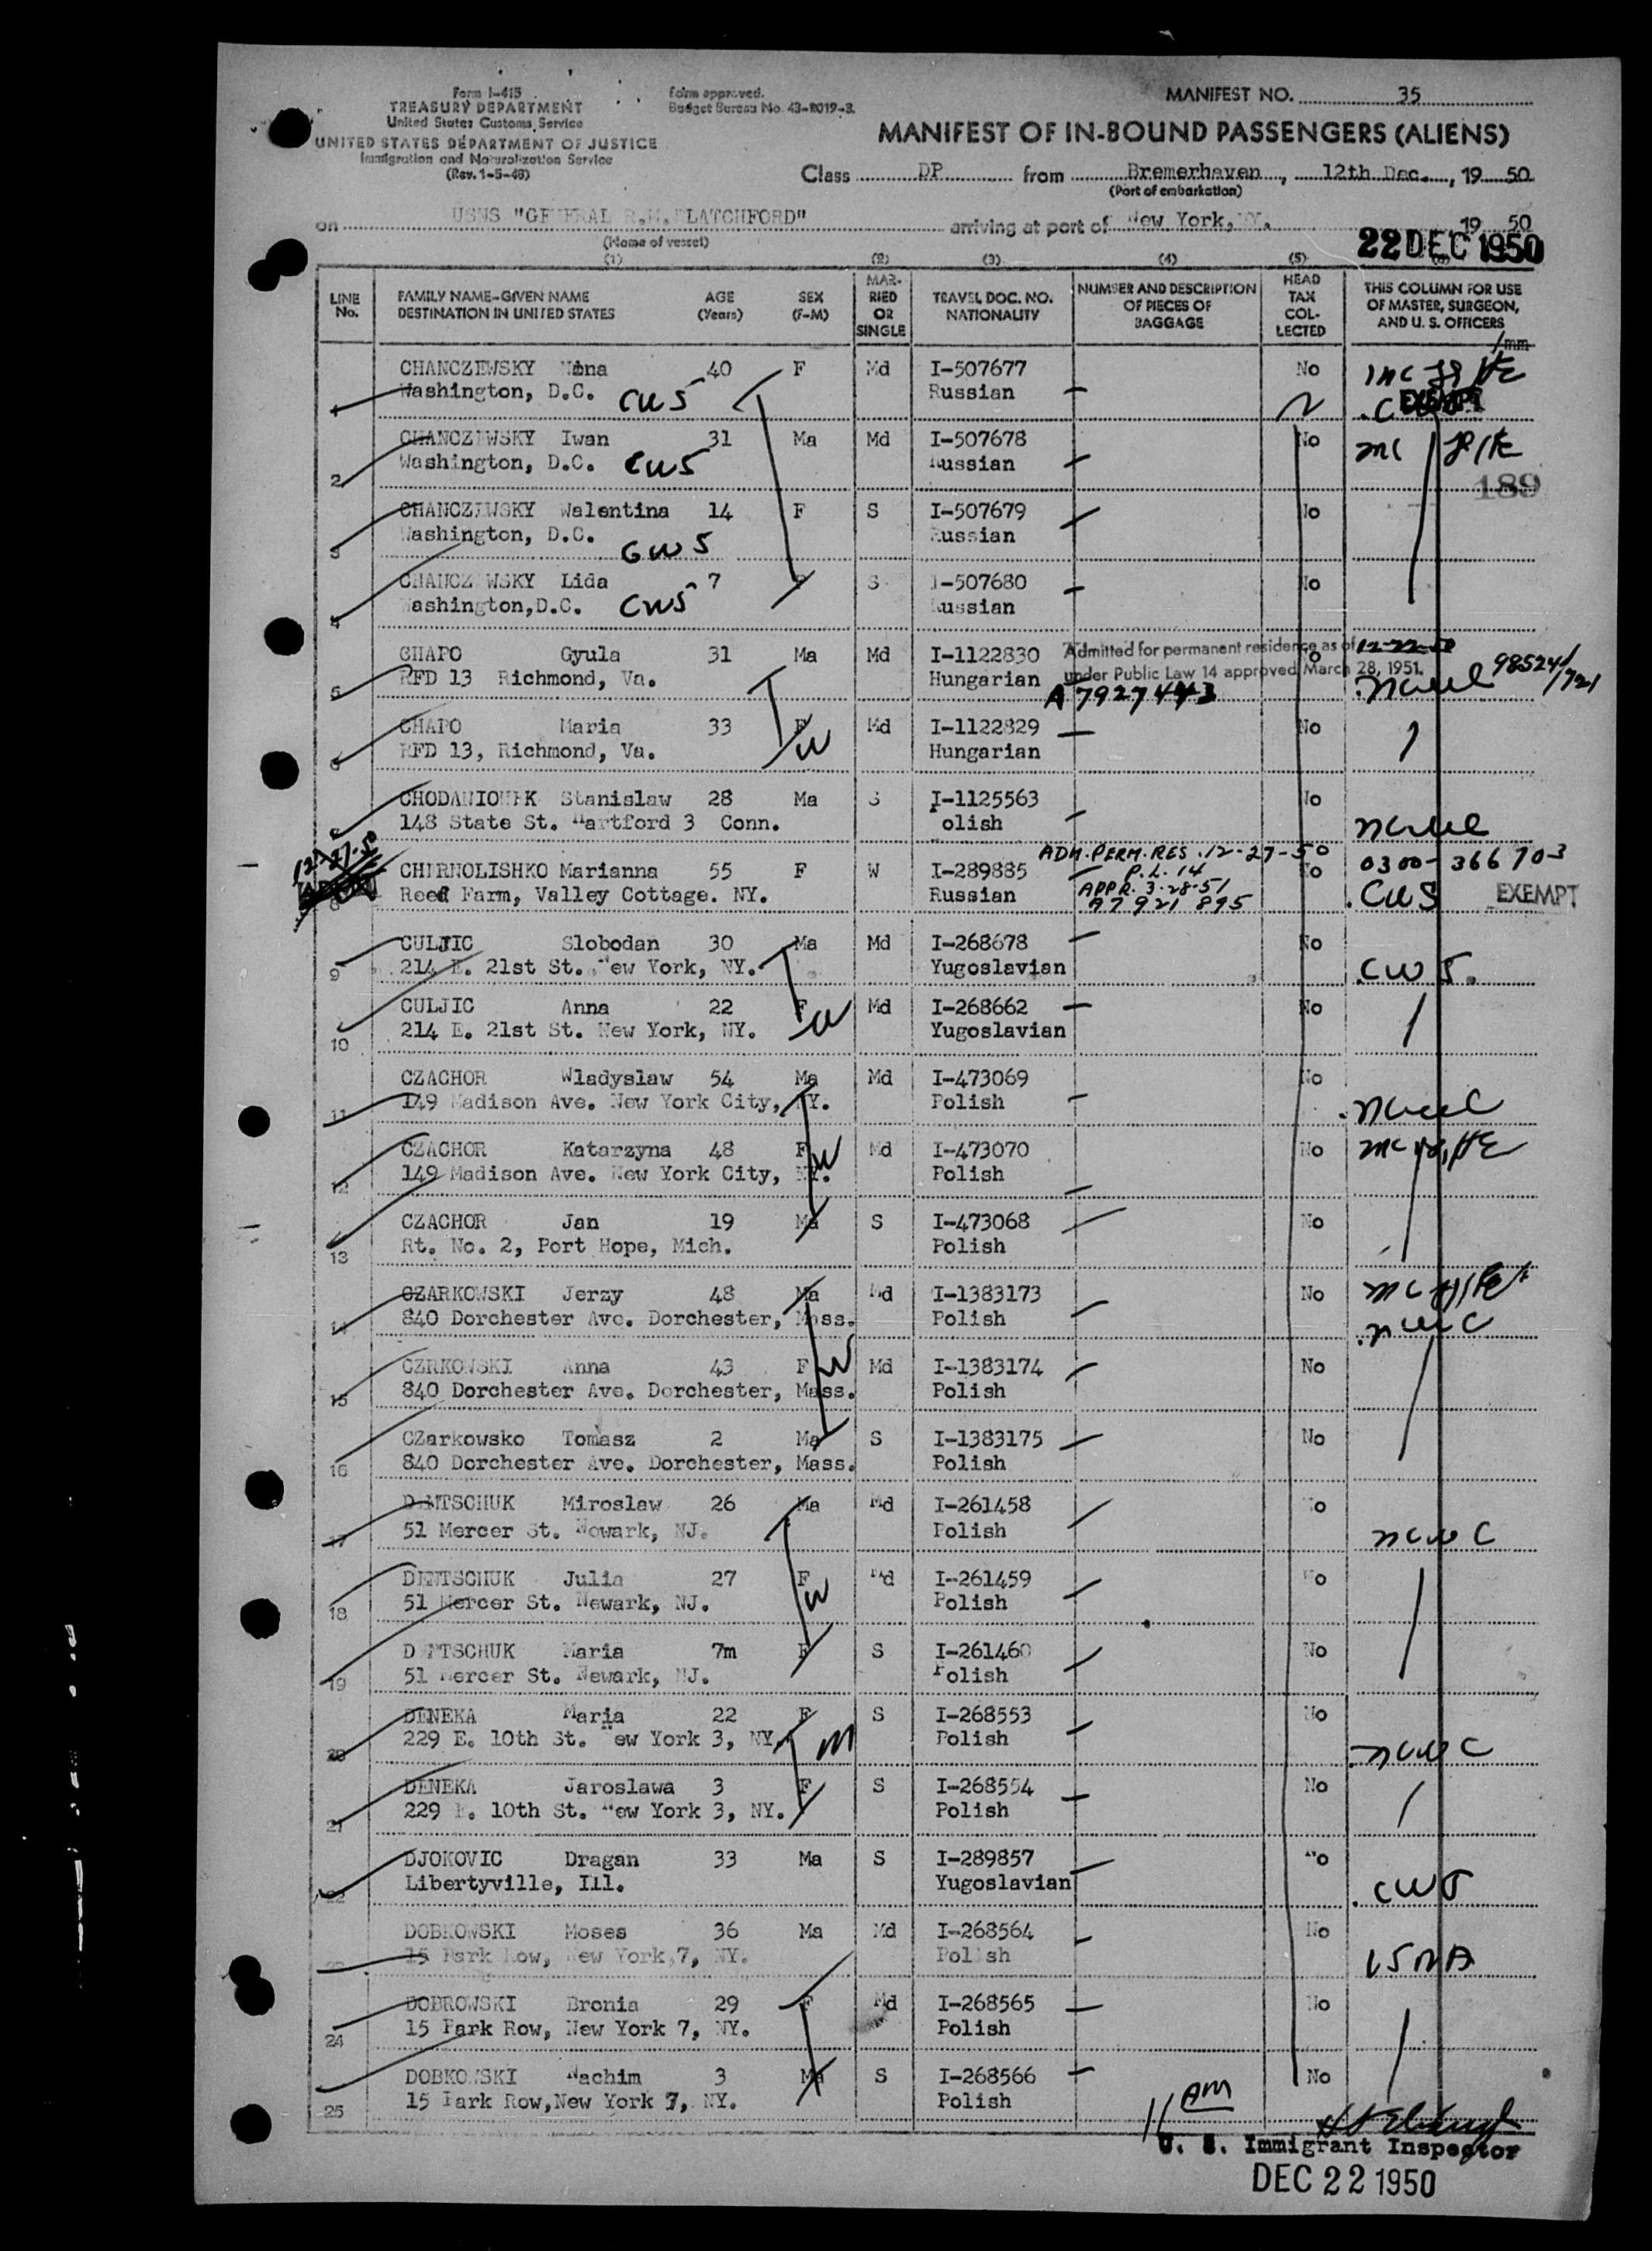 Form I-415
TREASURY DEPARTMENT
United States Customs Service
UNITED STATES DEPARTMENT OF JUSTICE
Immigration and Naturalization Service
(Rev. 1-5-48)
form approved.
Budget Bureau No. 43-R019-3.
MANIFEST NO. 35
MANIFEST OF IN-BOUND PASSENGERS (ALIENS)
Class DP from Bremerhaven, 12th Dec., 1950
(Port of embarkation)
on USNS "GENERAL R.M. BLATCHFORD" arriving at port of New York, NY. 1950
(Name of vessel)
22 DEC 1950
(1) (2) (3) (4) (5)
LINE No. FAMILY NAME-GIVEN NAME DESTINATION IN UNITED STATES AGE (Years) SEX (F-M) MARRIED OR SINGLE TRAVEL DOC. NO. NATIONALITY NUMBER AND DESCRIPTION OF PIECES OF BAGGAGE HEAD TAX COLLECTED THIS COLUMN FOR USE OF MASTER, SURGEON, AND U. S. OFFICERS
CHANCZEWSKY 40 F Md I-507677 No
1 Washington, D.C. CWS Russian EXEMPT
CHANCZEWSKY Iwan 31 Ma Md I-507678 No
2 Washington, D.C. CWS Russian
189
CHANCZEWSKY Walentina 14 F S I-507679 No
3 Washington, D.C. CWS Russian
CHANCZEWSKY Lida 7 F S I-507680 No
4 Washington,D.C. CWS Russian
CHAPO Gyula 31 Ma Md I-1122830 Admitted for permanent residence as of 12-22-50 No
5 RFD 13 Richmond, Va. Hungarian under Public Law 14 approved March 28, 1951. NCWC 98524/721
A 7927443
CHAPO Maria 33 F Md I-1122829 No
6 RFD 13, Richmond, Va. W Hungarian
CHODANIONEK Stanislaw 28 Ma S I-1125563 No
7 148 State St. Hartford 3 Conn. Polish NCWC
12-27-5
CHIRNOLISHKO Marianna 55 F W I-289885 ADM. PERM. RES. 12-27-50 No 0300-366703
8 Reed Farm, Valley Cottage. NY. Russian P.L. 14 APPR. 3-28-51 A7 921 895 CWS EXEMPT
CULJIC Slobodan 30 Ma Md I-268678 No
9 214 E. 21st St. New York, NY. Yugoslavian CWS.
CULJIC Anna 22 F Md I-268662 No
10 214 E. 21st St. New York, NY. W Yugoslavian
CZACHOR Wladyslaw 54 Ma Md I-473069 No
11 149 Madison Ave. New York City, NY. Polish NCWC
CZACHOR Katarzyna 48 F W Md I-473070 No
12 149 Madison Ave. New York City, NY. Polish
CZACHOR Jan 19 Ma S I-473068 No
13 Rt. No. 2, Port Hope, Mich. Polish
CZARKOWSKI Jerzy 48 Ma Md I-1383173 No
14 840 Dorchester Ave. Dorchester, Mass. Polish NCWC
CZRKOWSKI Anna 43 F W Md I-1383174 No
15 840 Dorchester Ave. Dorchester, Mass. Polish
CZarkowsko Tomasz 2 Ma S I-1383175 No
16 840 Dorchester Ave. Dorchester, Mass. Polish
DEMTSCHUK Miroslaw 26 Ma Md I-261458 No
17 51 Mercer St. Newark, NJ. Polish NCWC
DEMTSCHUK Julia 27 F W Md I-261459 No
18 51 Mercer St. Newark, NJ. Polish
DEMTSCHUK Maria 7m F S I-261460 No
19 51 Mercer St. Newark, NJ. Polish
DENEKA Maria 22 F S I-268553 No
20 229 E. 10th St. New York 3, NY. M Polish NCWC
DENEKA Jaroslawa 3 F S I-268554 No
21 229 E. 10th St. New York 3, NY. Polish
DJOKOVIC Dragan 33 Ma S I-289857 No
22 Libertyville, Ill. Yugoslavian CWS
DOBKOWSKI Moses 36 Ma Md I-268564 No
23 15 Park Row, New York,7, NY. Polish USNA
DOBROWSKI Bronia 29 F Md I-268565 No
24 15 Park Row, New York 7, NY. Polish
DOBKOWSKI Nachim 3 Ma S I-268566 No
25 15 Park Row,New York 7, NY. Polish
11 AM
U. S. Immigrant Inspector
DEC 22 1950